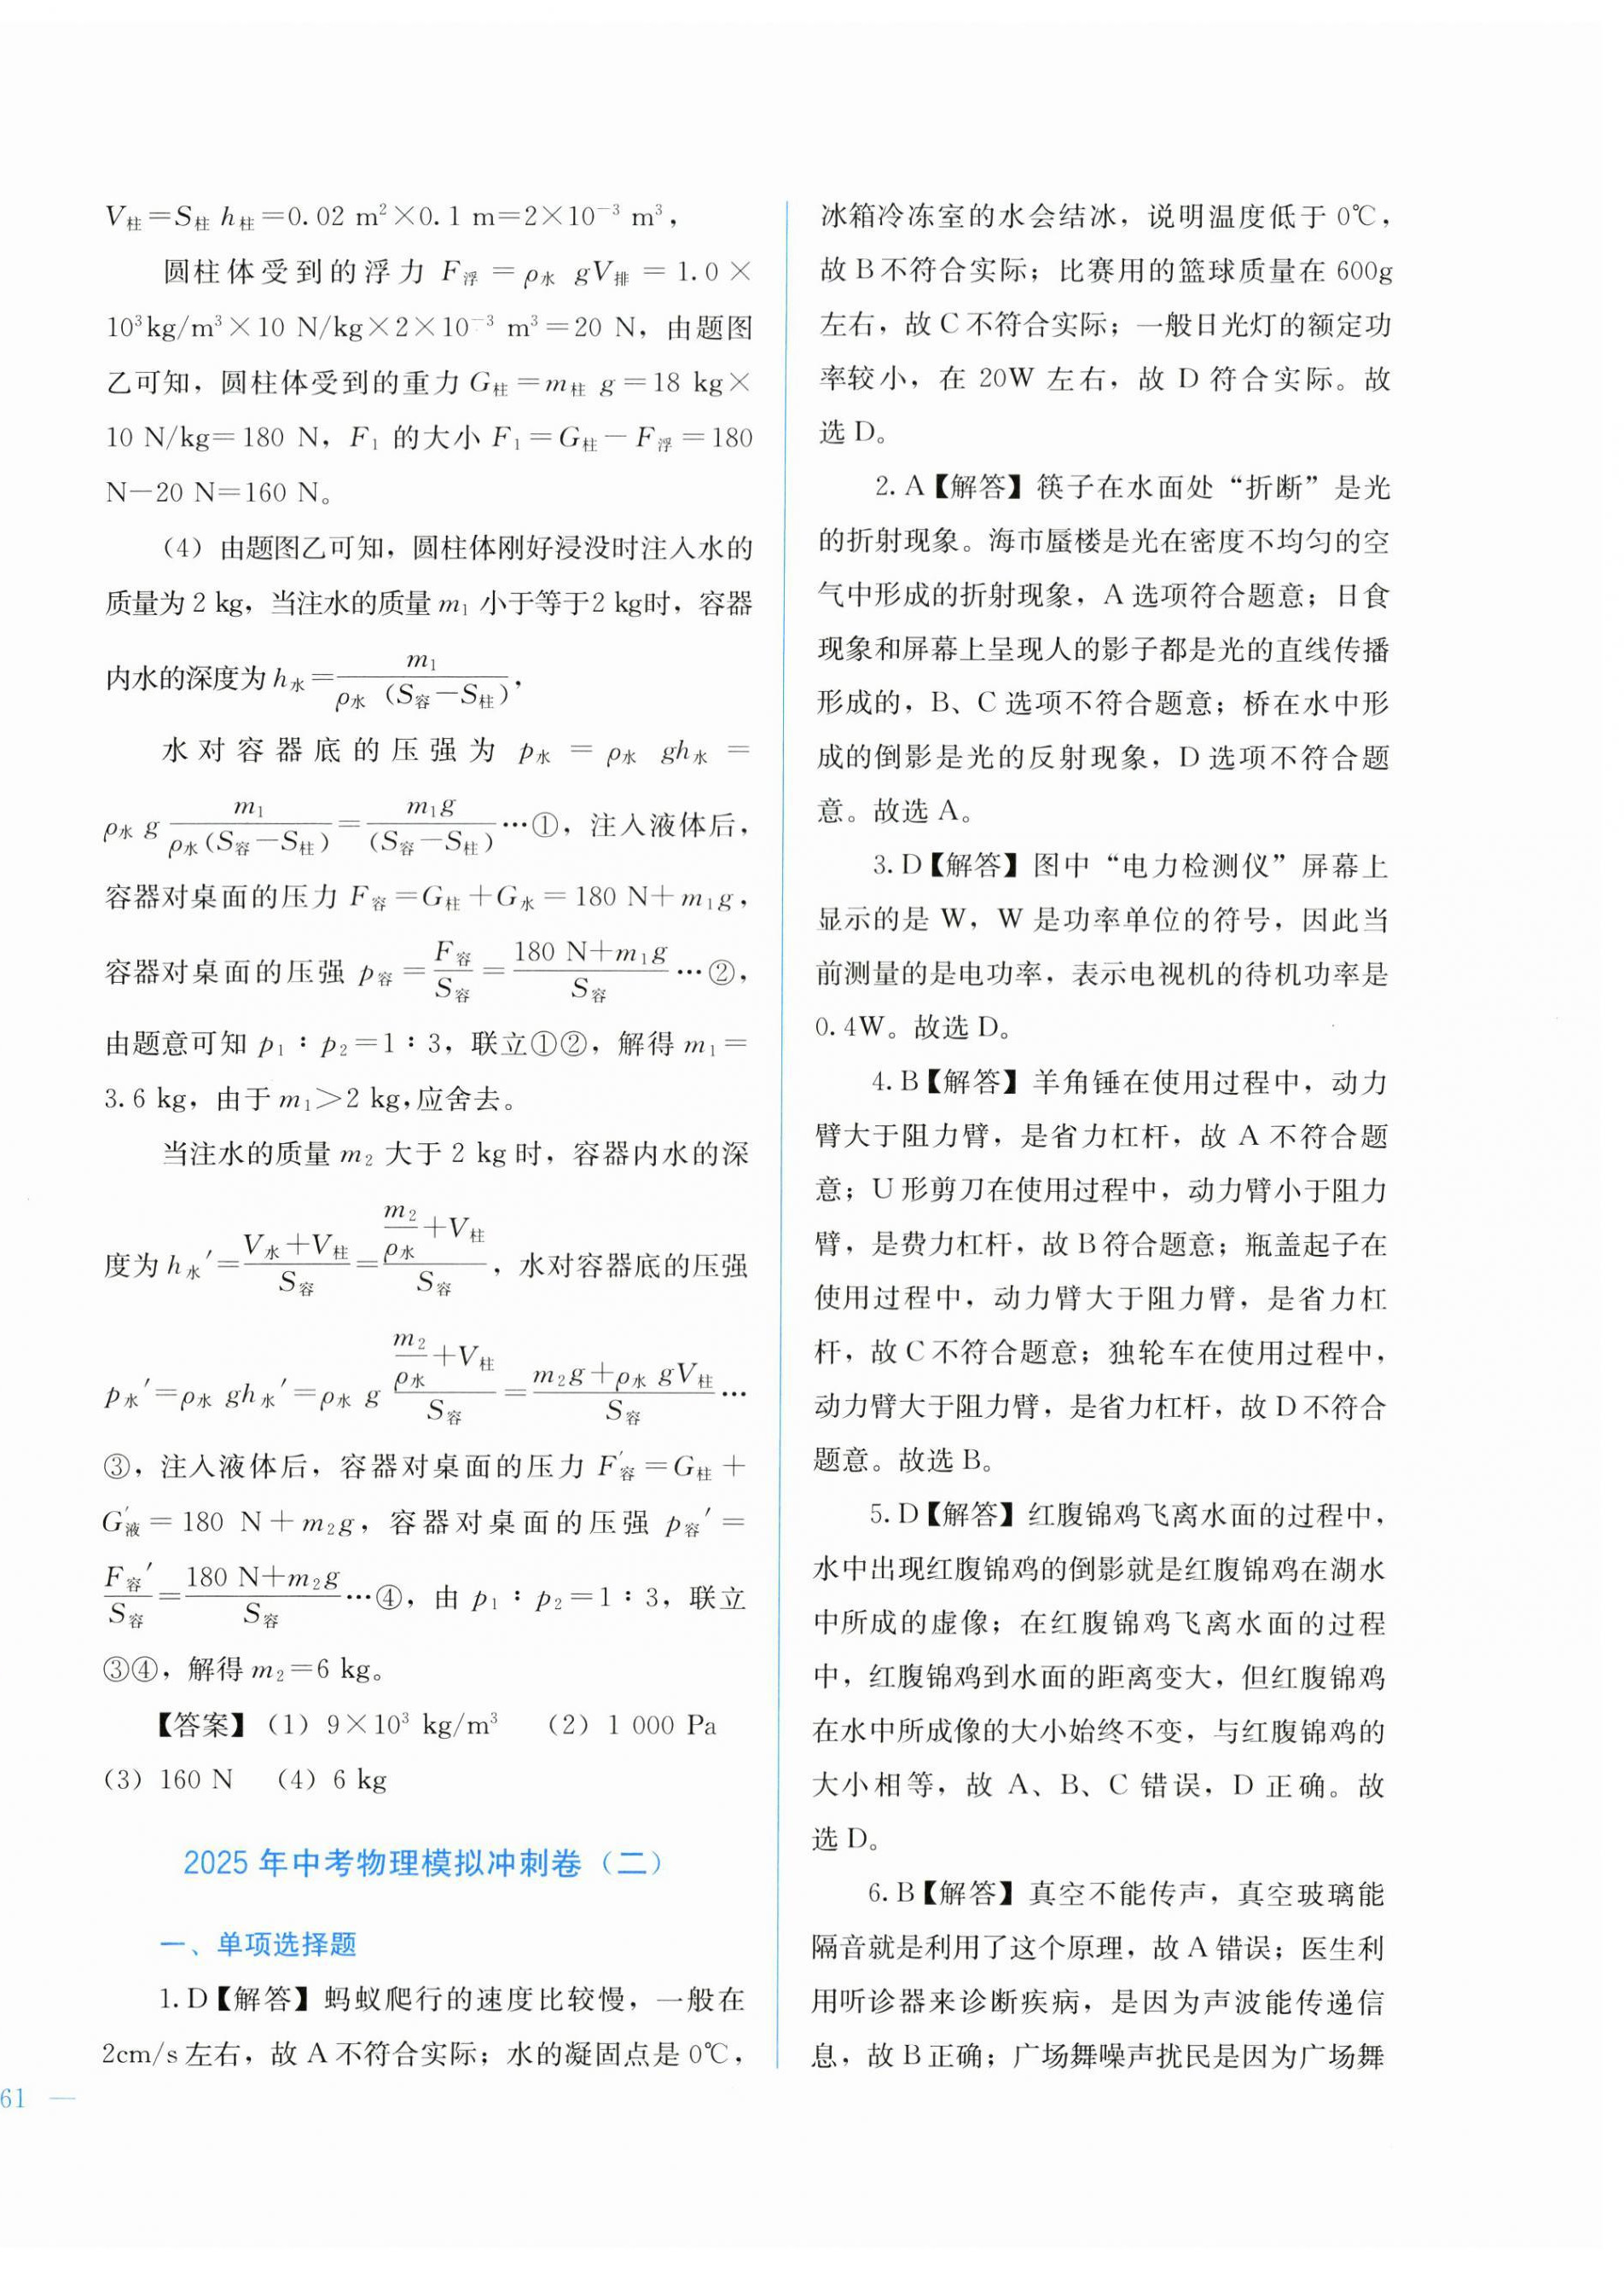 V柱=S柱 h柱=0.02 m²×0.1 m=2×10⁻³ m³，
圆柱体受到的浮力 F浮 = ρ水 gV排 = 1.0 ×
10³kg/m³×10 N/kg×2×10⁻³ m³=20 N，由题图
乙可知，圆柱体受到的重力 G柱=m柱 g=18 kg×
10 N/kg=180 N，F₁ 的大小 F₁=G柱－F浮=180
N－20 N=160 N。
（4）由题图乙可知，圆柱体刚好浸没时注入水的
质量为 2 kg，当注水的质量 m₁ 小于等于2 kg时，容器
内水的深度为 h水=m₁/ρ水（S容－S柱），
水对容器底的压强为 p水 = ρ水 gh水 =
ρ水 g m₁/ρ水(S容－S柱)=m₁g/(S容－S柱)…①，注入液体后，
容器对桌面的压力 F容=G柱+G水=180 N+m₁g，
容器对桌面的压强 p容=F容/S容=180 N+m₁g/S容…②，
由题意可知 p₁：p₂=1：3，联立①②，解得 m₁=
3.6 kg，由于 m₁>2 kg,应舍去。
当注水的质量 m₂ 大于 2 kg 时，容器内水的深
度为 h水′=V水+V柱/S容=m₂/ρ水+V柱/S容，水对容器底的压强
p水′=ρ水 gh水′=ρ水 g m₂/ρ水+V柱/S容=m₂g+ρ水 gV柱/S容…
③，注入液体后，容器对桌面的压力 F′容=G柱+
G′液=180 N+m₂g，容器对桌面的压强 p容′=
F容′/S容=180 N+m₂g/S容…④，由 p₁：p₂=1：3，联立
③④，解得 m₂=6 kg。
【答案】（1）9×10³ kg/m³ （2）1 000 Pa
（3）160 N （4）6 kg
2025 年中考物理模拟冲刺卷（二）
一、单项选择题
1. D【解答】蚂蚁爬行的速度比较慢，一般在
2cm/s 左右，故 A 不符合实际；水的凝固点是 0℃，
61 —
冰箱冷冻室的水会结冰，说明温度低于 0℃，
故 B 不符合实际；比赛用的篮球质量在 600g
左右，故 C 不符合实际；一般日光灯的额定功
率较小，在 20W 左右，故 D 符合实际。故
选 D。
2. A【解答】筷子在水面处“折断”是光
的折射现象。海市蜃楼是光在密度不均匀的空
气中形成的折射现象，A 选项符合题意；日食
现象和屏幕上呈现人的影子都是光的直线传播
形成的，B、C 选项不符合题意；桥在水中形
成的倒影是光的反射现象，D 选项不符合题
意。故选 A。
3. D【解答】图中“电力检测仪”屏幕上
显示的是 W，W 是功率单位的符号，因此当
前测量的是电功率，表示电视机的待机功率是
0.4W。故选 D。
4. B【解答】羊角锤在使用过程中，动力
臂大于阻力臂，是省力杠杆，故 A 不符合题
意；U 形剪刀在使用过程中，动力臂小于阻力
臂，是费力杠杆，故 B 符合题意；瓶盖起子在
使用过程中，动力臂大于阻力臂，是省力杠
杆，故 C 不符合题意；独轮车在使用过程中，
动力臂大于阻力臂，是省力杠杆，故 D 不符合
题意。故选 B。
5. D【解答】红腹锦鸡飞离水面的过程中，
水中出现红腹锦鸡的倒影就是红腹锦鸡在湖水
中所成的虚像；在红腹锦鸡飞离水面的过程
中，红腹锦鸡到水面的距离变大，但红腹锦鸡
在水中所成像的大小始终不变，与红腹锦鸡的
大小相等，故 A、B、C 错误，D 正确。故
选 D。
6. B【解答】真空不能传声，真空玻璃能
隔音就是利用了这个原理，故 A 错误；医生利
用听诊器来诊断疾病，是因为声波能传递信
息，故 B 正确；广场舞噪声扰民是因为广场舞